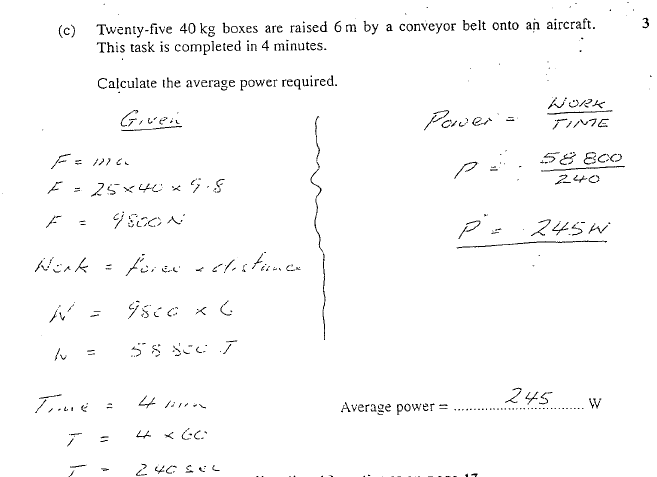 (c) Twenty-five 40 kg boxes are raised 6 m by a conveyor belt onto an aircraft. 3
This task is completed in 4 minutes.
Calculate the average power required.
Given
F = ma
F = 25 × 40 × 9.8
F = 9800 N
Work = force × distance
W = 9800 × 6
W = 58 800 J
Time = 4 min
T = 4 × 60
T = 240 sec
Power = WORK
TIME
P = 58 800
240
P = 245 W
Average power = 245 W